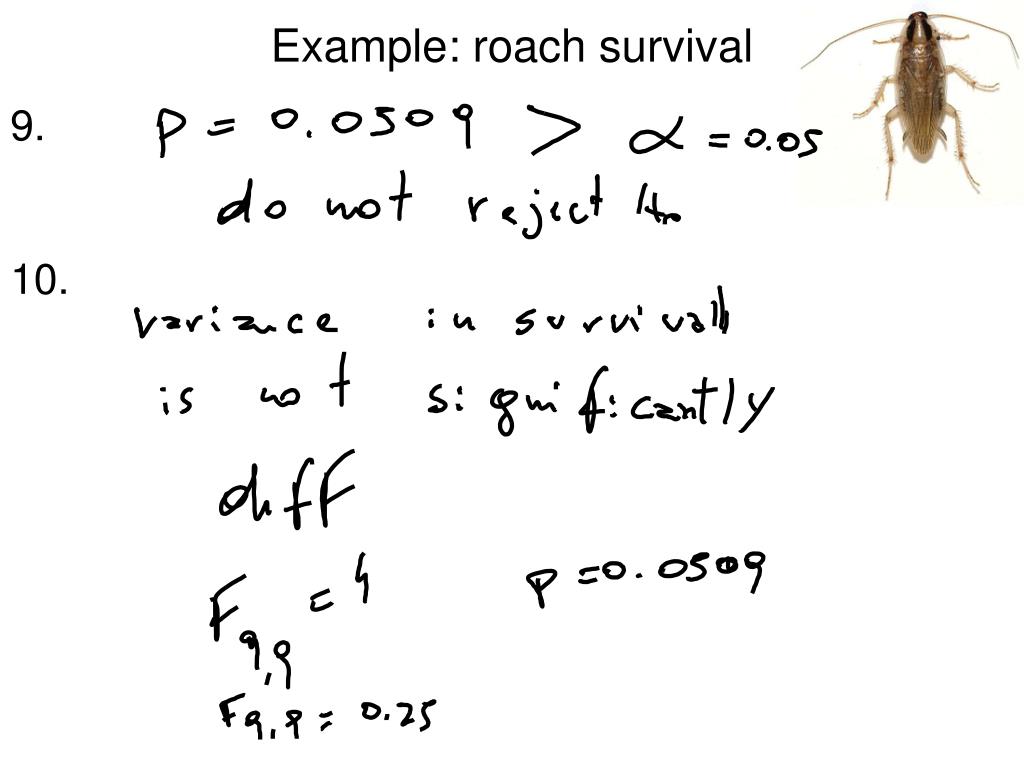 Example: roach survival
9. p = 0.0509 > α = 0.05
do not reject H₀
10.
variance in survival
is not significantly
diff
F₉,₉ = 4 p = 0.0509
F₉,₉ = 0.25